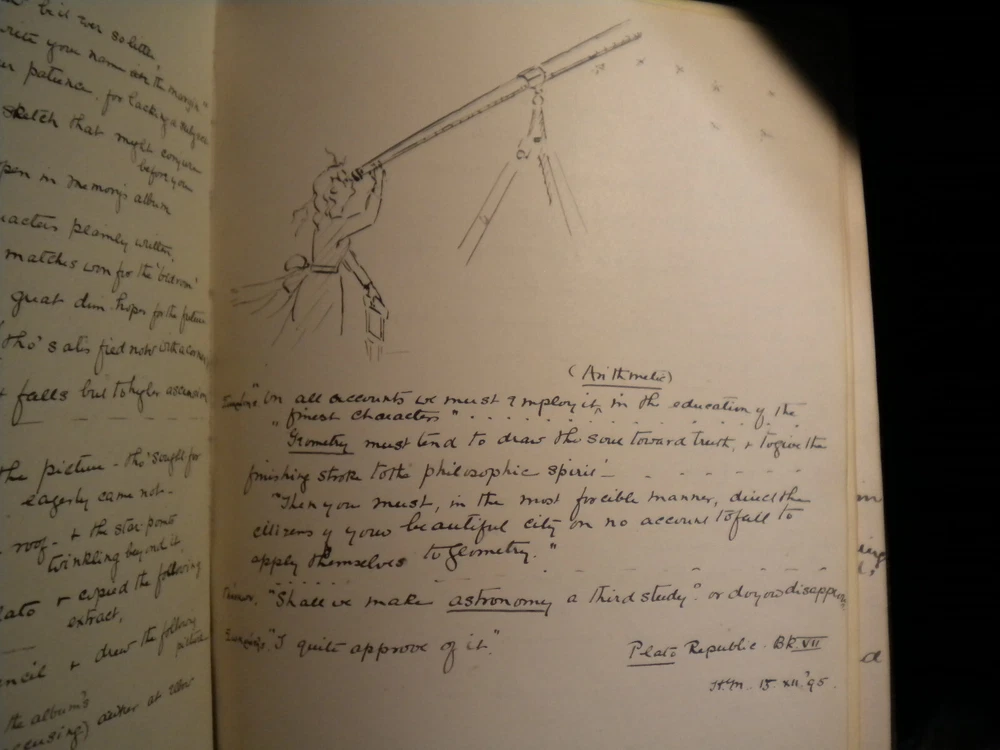 bid ever so little,
write your name in the margin"
patience, for lacking a
sketch that might
before you
open in memory's album
plainly written,
matches won for the
great dim hopes for the future
tho' satisfied now with a corner
+ falls but to higher ascension
the picture - tho' sought for
eagerly came not -
roof - + the star points
twinkling beyond it
+ copied the following
extract,
+ drew the following
picture
the album's
author at
(Arithmetic)
"on all accounts we must employ it, in the education of the
finest characters"
"Geometry must tend to draw the soul toward truth, + to give the
finishing stroke to the philosophic spirit -
"Then you must, in the most forcible manner, direct the
citizens of your beautiful city on no account to fail to
apply themselves to Geometry."
"Shall we make astronomy a third study? or do you disapprove
"I quite approve of it."
Plato Republic. Bk VII
H.M. 15. XII. '95.